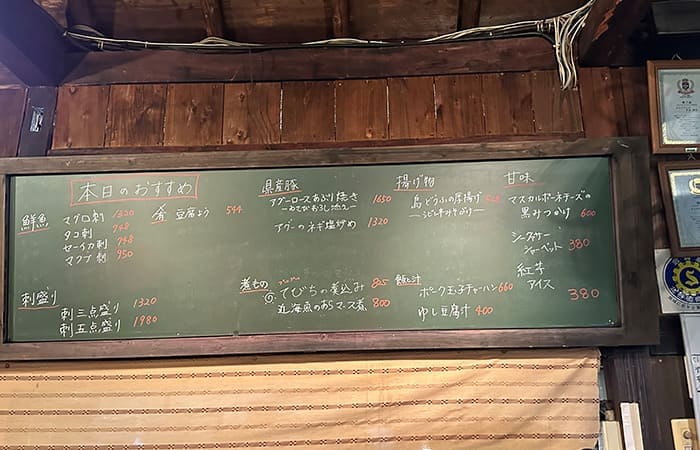 本日のおすすめ
鮮魚
マグロ刺 1320
タコ刺 748
セーイカ刺 748
マクブ刺 950
肴 豆腐よう 544
刺盛り
刺三点盛り 1320
刺五点盛り 1980
県産豚
アグーロースあぶり焼き 1650
アグーのネギ塩炒め 1320
煮もの
てびちの煮込み 825
近海魚のあらマース煮 800
揚げ物
島どうふの厚揚げ
飯と汁
ポーク玉子チャーハン 660
ゆし豆腐汁 400
甘味
マスカルポーネチーズの
黒みつかけ 600
シークヮーサー
シャーベット 380
紅芋
アイス 380